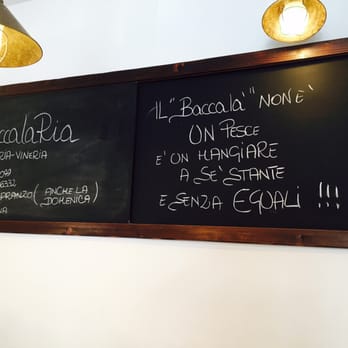 ccalaRia
RIA-VINERIA
099
6332
PRANZO (ANCHE LA
DOMENICA)
NA
IL "Baccalà" NON È
UN PESCE
E' UN MANGIARE
A SE' STANTE
E SENZA EGUALI !!!